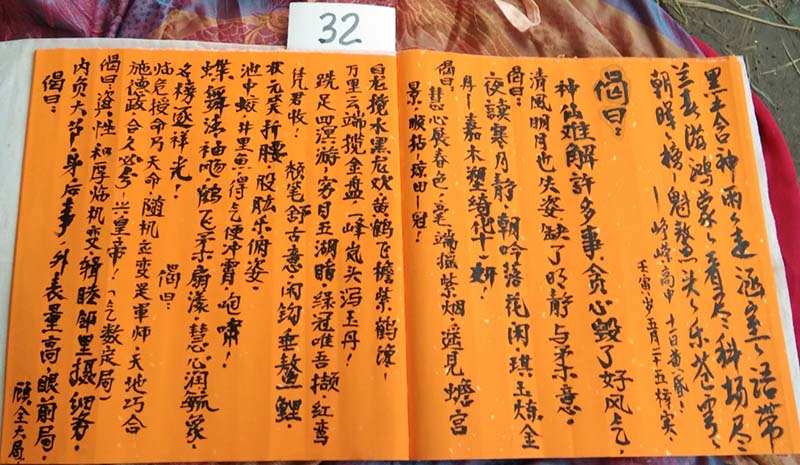 32
黑尖含神雨々走涵室々语带
兰春游鸿蒙々看尽科场尽
朝晖々榜一魁鳌头々乐苍穹々
峥嵘高中
壬寅岁五月二十五
偈曰：
神仙难解許多事，贪心毁了好风气，
清風明月也失姿，缺了明静与柔意。
偈曰：夜讀寒月静，朝吟落花闲，琪玉炼金
丹一嘉木塑绮花十一妍！
偈曰：慧心展春色，毫端摇紫烟，遥见蟾宫
景，順拈琼田一冠！
白龙搅水黑龙欢黄鹤飞檐紫鹤谨！
万里云端揽金盘，峰岚头泻玉丹！
跣足四溟游，穷目五湖瞄，绿冠唯吾撷，红鸾
凭君收！ 颓笔舒古意，闲钩垂鳌鲤，
状元笑折腰，股肱乐俯姿。
池中蛟，井里鱼，得气便冲霄咆啸！
蝶舞法袖飏鹤飞柔扇漾，慧心润毓家，
名榜逐祥光！ 偈曰：
临危授命乃天命，随机应变是军师，天地巧合
施德政，合久必兮兴皇帝！（气数定局）
偈曰：资性和厚临机变，缉睦邻里摄细君，
内贤大节身后事，外表量高，眼前局，
偈曰：
顾全大局，